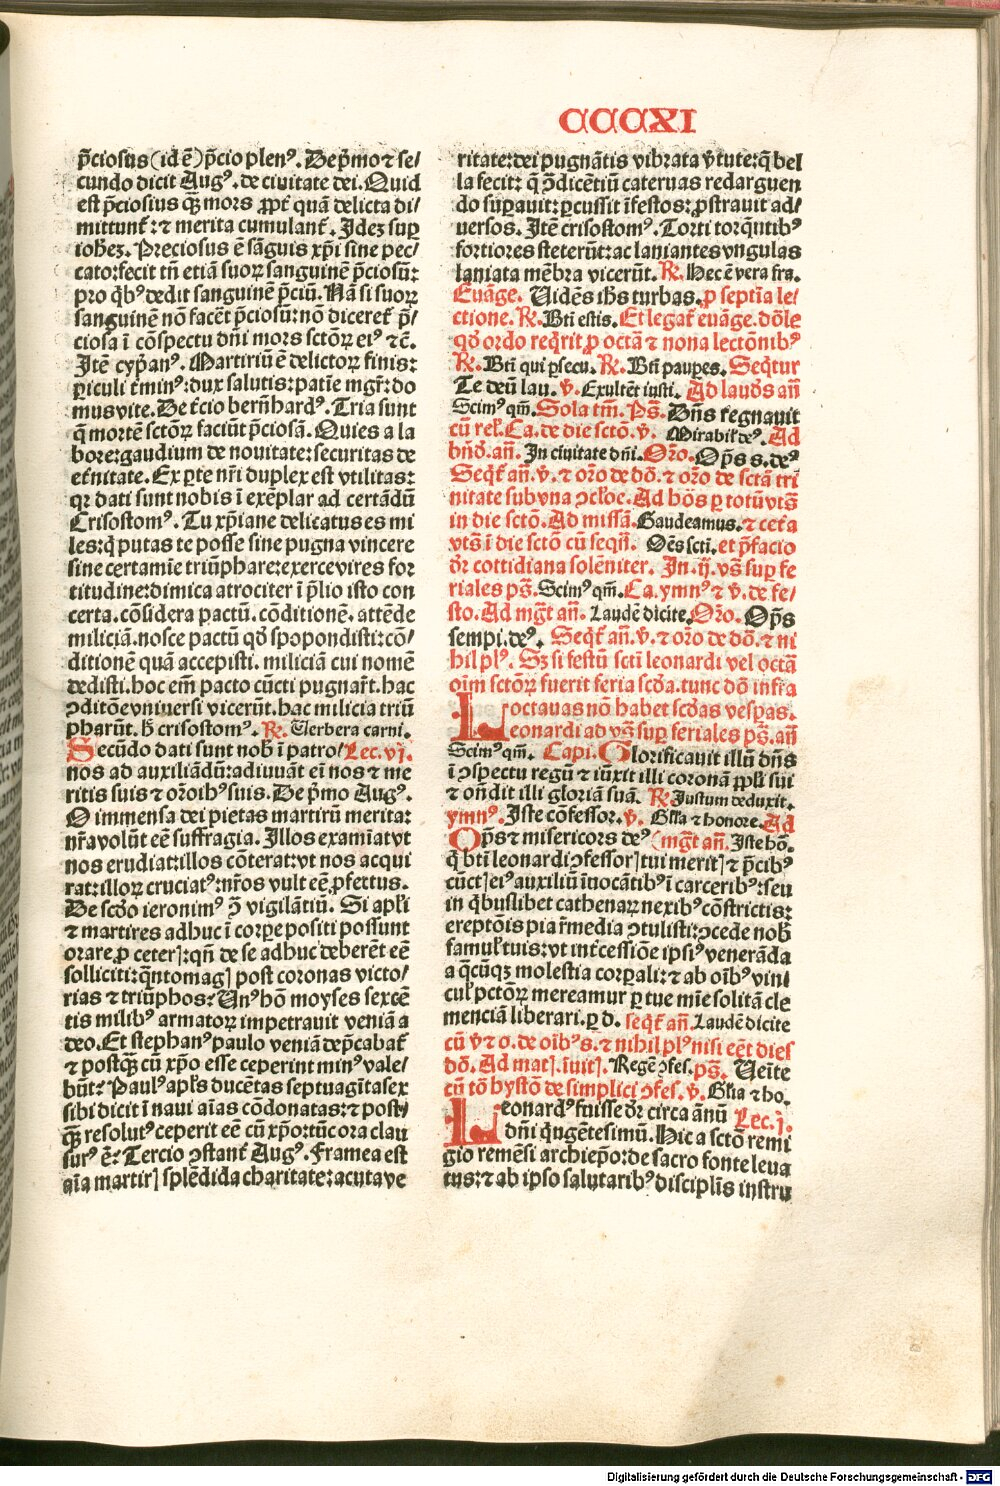 CCCXI
p̄ciosus (id ē) p̄cio plenꝰ. De pͥmo ⁊ se/
cundo dicit Augꝰ. de ciuitate dei. Quid
est p̄ciosius qꝫ mors ꝓpt̉ quā delicta di/
mittunt̉: ⁊ merita cumulant̉. Idez suꝑ
ioheꝫ. Preciosus ē sāguis xp̄i sine pec/
cato: fecit tn̄ etiā suoꝝ sanguinē p̄ciosū:
pro qͥbꝰ dedit sanguinē p̄ciū. Nā si suoꝝ
sanguinē nō facēt p̄ciosū: nō diceret̉ p̄/
ciosa ī cōspectu dn̄i mors sctōꝝ eiꝰ ⁊ c̄.
Itē cypͥanꝰ. Martiriū ē delictoꝝ finis:
ꝑiculi t̉minꝰ: dux salutis: patiē mgr̄: do
mus vite. De t̉cio bern̄hardꝰ. Tria sunt
q̄ mortē sctōꝝ faciūt p̄ciosā. Quies a la
bore: gaudium de nouitate: securitas de
et̉nitate. Ex ꝑte nr̄i duplex est vtilitas:
qꝛ dati sunt nobis ī exēplar ad certādū
Crisostomꝰ. Tu xp̄iane delicatus es mi
les: qͥ putas te posse sine pugna vincere
sine certamīe triūphare: exerce vires for
titudine: dimica atrociter ī p̄lio isto con
certa. cōsidera pactū. cōditionē. attēde
miliciā. nosce pactū qḋ spopondisti: cō/
ditionē quā accepisti. miliciā cui nomē
dedisti. hoc em̄ pacto cūcti pugnar̄t. hac
ꝯditōe vniuersi vicerūt. hac milicia triū
pharūt. h̄ crisostomꝰ. ℟. Uerbera carni.
Secūdo dati sunt nob̄ ī patro/ Lec. vj.
nos ad auxiliādū: adiuuāt eī nos ⁊ me
ritis suis ⁊ or̄oibꝰ suis. De pͥmo Augꝰ.
O immensa dei pietas martirū merita:
nr̄a volūt eē suffragia. Illos examīat vt
nos erudiat: illos cōterat: vt nos acqui
rat: illoꝝ cruciatꝰ: nr̄os vult eē ꝓfectus.
De scḋo ieronimꝰ ꝯ̄ vigilātiū. Si apl̄i
⁊ martires adhuc ī corꝑe positi possunt
orare ꝓ ceterꝭ: qn̄ de se adhuc deberēt eē
solliciti: qͣntomagꝭ post coronas victo/
rias ⁊ triūphos: Unꝰ hō moyses sexcē
tis milibꝰ armatoꝝ impetrauit veniā a
deo. Et stephanꝰ paulo veniā dep̄cabat̉
⁊ postqꝫ cū xp̄o esse ceperint minꝰ vale/
būt: Paulꝰ apl̄s ducētas septuagīta sex
sibi dicit ī naui aīas cōdonatas: ⁊ post/
qꝫ resolutꝰ ceperit eē cū xp̄o: tūc ora clau
surꝰ ē: Tercio ꝯstant̉ Augꝰ. Framea est
aīa martirꝭ splēdida charitate: acuta ve
ritate: dei pugnātis vibrata v̉tute: q̄ bel
la fecit: q̄ ꝯ̄dicētiū cateruas redarguen
do suꝑauit: ꝑcussit īfestos: ꝓstrauit ad/
uersos. Itē crisostomꝰ. Torti torquētibꝰ
fortiores steterūt: ac laniantes vngulas
laniata mēbra vicerūt. ℟. Hec ē vera fra.
Euāge. Uidēs ih̄s turbas. ꝓ septīa le/
ctione. ℟. Bt̄i estis. Et legat̉ euāge. dōle
qḋ ordo reqͥrit ꝓ octā ⁊ nona lectōnibꝰ
℟. Bt̄i qui ꝑsecu. ℟. Bt̄i pauꝑes. Seqͥtur
Te deū lau. v̉. Exultēt iusti. Ad laudꝭ an̄
Scimꝰ qm̄. Sola tm̄. Ps̄. Dn̄s regnauit
cū rel̄. Ca. de die sctō. v̉. Mirabil̄ deꝰ. Ad
bn̄ḋ. an̄. In ciuitate dn̄i. Or̄o. Op̄s s. deꝰ
Seqͥt̉ an̄. v̉. ⁊ or̄o de dō. ⁊ or̄o de sctā tri
nitate sub vna ꝯcl̄oe. Ad hōs ꝑ totū vts̄
in die sctō. Ad missā. Gaudeamus. ⁊ cet̉a
vts̄ ī die sctō cū seqn̄. Oēs scti. et p̄facio
dr̄ cottidiana solēniter. In. ij. vs̄ suꝑ fe
riales ps̄. Scimꝰ qm̄. Ca. ymnꝰ ⁊ v̉. de fe/
sto. Ad mgt̄ an̄. Laudē dicite. Or̄o. Op̄s
sempi. deꝰ. Seqͥt̉ an̄. v̉. ⁊ or̄o de dō. ⁊ ni
hil plꝰ. Sꝫ si festū scti leonardi vel octā
oīm sctōꝝ fuerit feria scḋa. tunc dō infra
octauas nō habet scḋas vesꝑas.
Leonardi ad vs̄ suꝑ feriales ps̄. an̄
Scimꝰ qm̄. Capi. Glorificauit illū dn̄s
ī ꝯspectu regū ⁊ iūxit illi coronā ꝓpl̄i sui
⁊ on̄dit illi gloriā suā. ℟. Justum deduxit.
ymnꝰ. Iste cōfessor. v̉. Gl̄ia ⁊ honore. Ad
Op̄s ⁊ misericors deꝰ (mgt̄ an̄. Iste hō.
qͥ bt̄i leonardi ꝯfessorꝭ tui meritꝭ ⁊ p̄cibꝰ
cūctꝭ eiꝰ auxiliū īuocātibꝰ ī carceribꝰ: seu
in qͥbuslibet cathenaꝝ nexibꝰ cōstrictis:
ereptōis pia r̄media ꝯtulisti: ꝯcede nob̄
famul̄ tuis: vt int̉cessiōe ipsiꝰ venerāda
a qͥcūqꝫ molestia corꝑali: ⁊ ab oībꝰ vin/
cul̄ pctōꝝ mereamur ꝑ tue mīe solitā cle
menciā liberari. ꝑ d. seqͥt̉ an̄. Laudē dicite
cū v̉ ⁊ o. de oībꝰ s. ⁊ nihil plꝰ nisi eēt dies
dō. Ad matꝭ. īuitꝭ. Regē ꝯfes. ps̄. Ueīte
cū tō hystō de simplici ꝯfes. v̉. Gl̄ia ⁊ ho.
Leonardꝰ fuisse dr̄ circa ānū Lec. j.
dn̄i qͥngētesimū. Hic a sctō remi
gio remēsi archiep̄o: de sacro fonte leua
tus: ⁊ ab ipso salutaribꝰ disciplīs instru
Digitalisierung gefördert durch die Deutsche Forschungsgemeinschaft - DFG